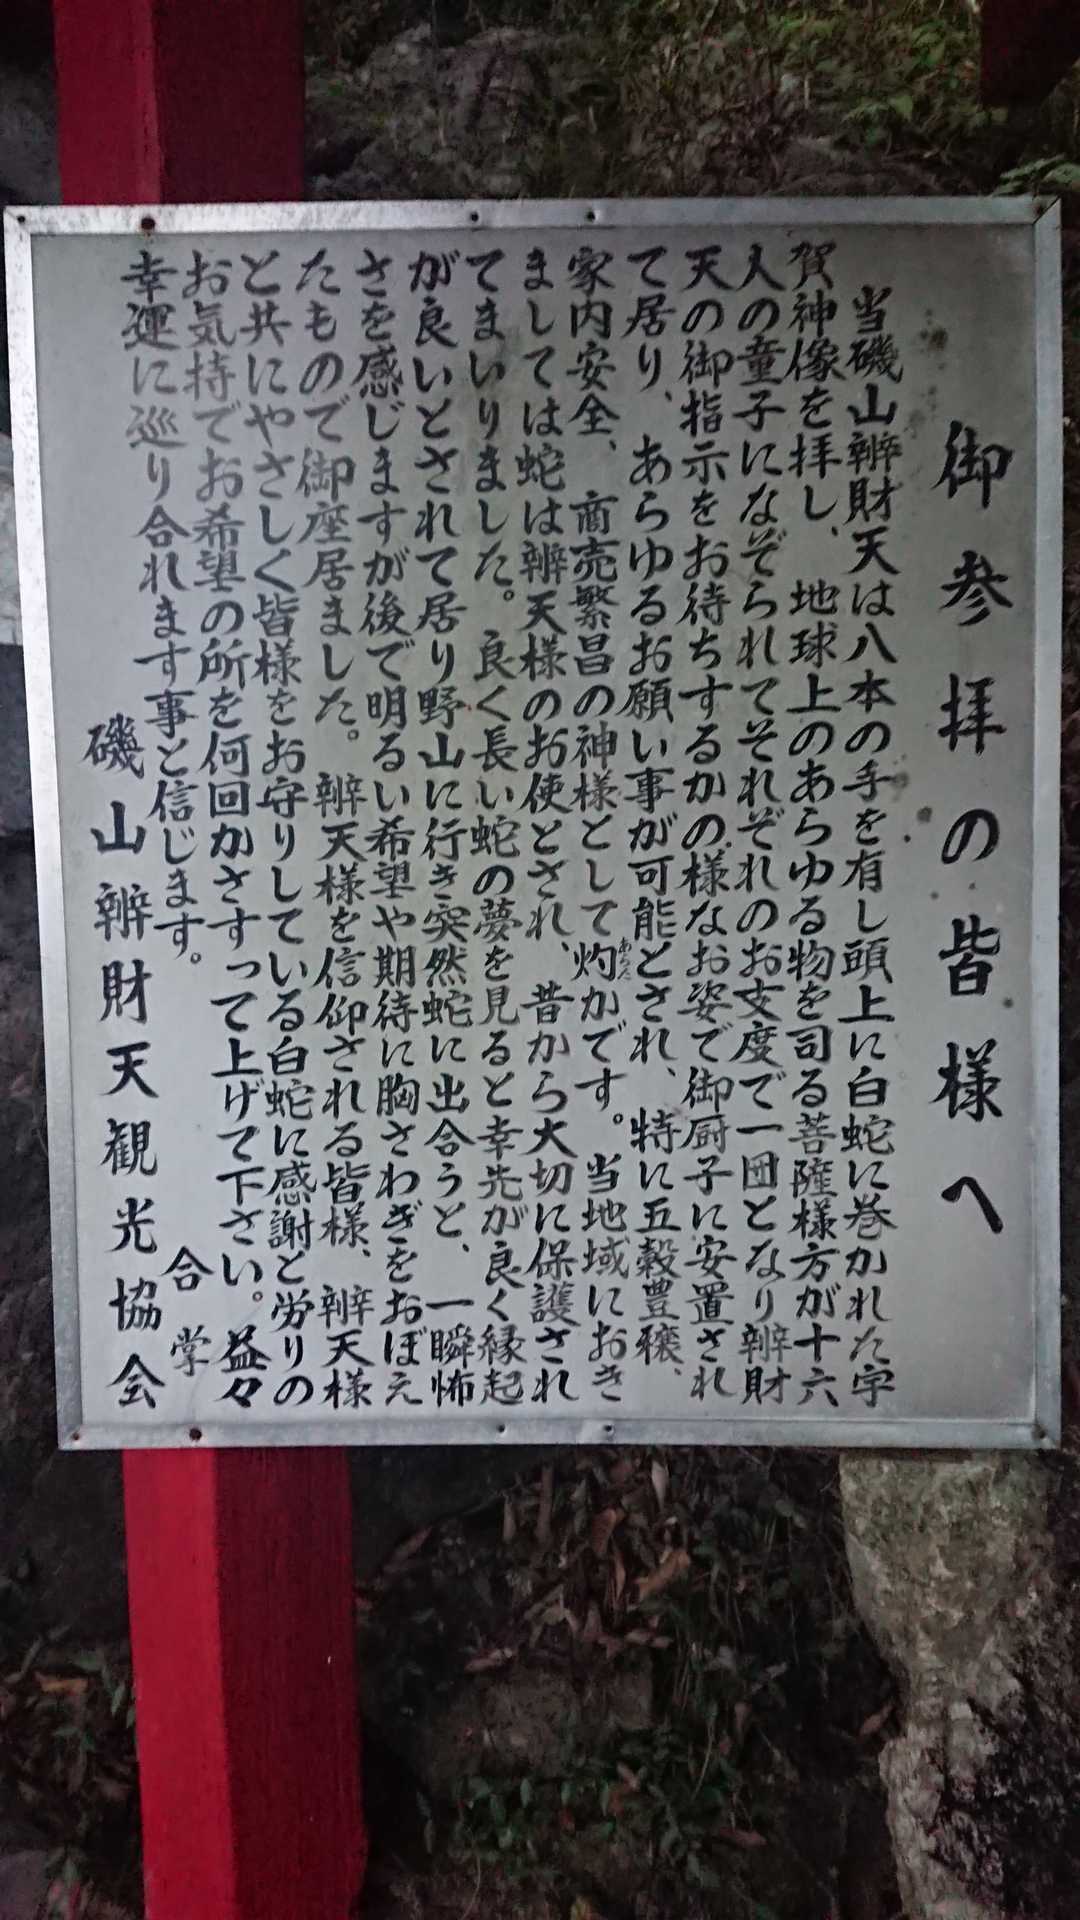 御参拝の皆様へ
当磯山辨財天は八本の手を有し頭上に白蛇に巻かれた宇
賀神像を拝し、地球上のあらゆる物を司る菩薩様方が十六
人の童子になぞられてそれぞれのお支度で一団となり辨財
天の御指示をお待ちするかの様なお姿で御厨子に安置され
て居り、あらゆるお願い事が可能とされ、特に五穀豊穣、
家内安全、商売繁昌の神様として灼かです。当地域におき
あらた
ましては蛇は辨天様のお使とされ、昔から大切に保護され
てまいりました。良く長い蛇の夢を見ると幸先が良く縁起
が良いとされて居り野山に行き突然蛇に出合うと、一瞬怖
さを感じますが後で明るい希望や期待に胸さわぎをおぼえ
たもので御座居ました。辨天様を信仰される皆様、辨天様
と共にやさしく皆様をお守りしている白蛇に感謝と労りの
お気持でお希望の所を何回かさすって上げて下さい。益々
幸運に巡り合れます事と信じます。
合掌
磯山辨財天観光協会